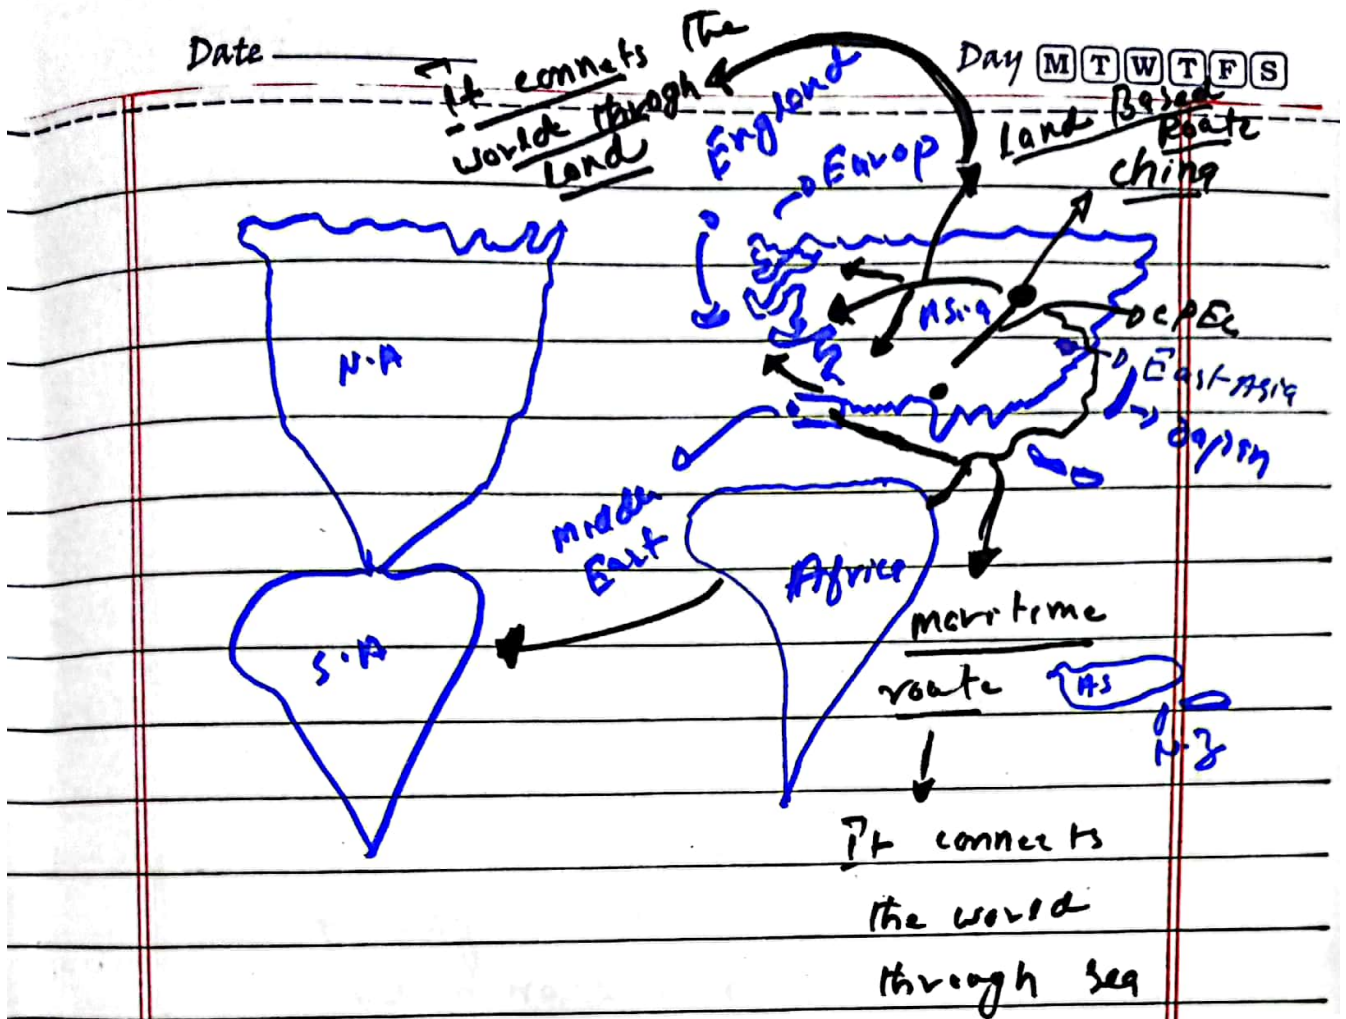 Date
Day M T W T F S
It connets the
world throgh
Land
England
Europ
Land Based
Roate
China
N.A
Asia
CPEC
East-Asia
Japan
Middle
East
Africa
S.A
maritime
roate
AS
N.Z
It connects
the world
through sea